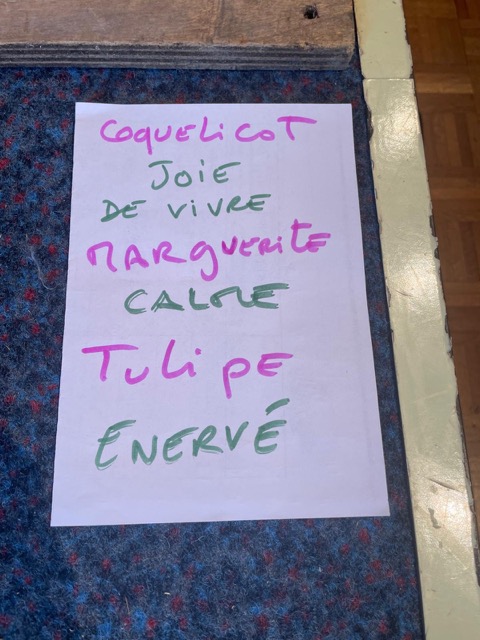 COQUELICOT
JOIE
DE VIVRE
MARGUERITE
CALME
TULIPE
ÉNERVÉ